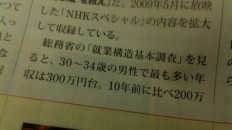 た。2009年5月に放映
した「NHKスペシャル」の内容を拡大
して収録している。
総務省の「就業構造基本調査」を見
ると、30〜34歳の男性で最も多い年
収は300万円台。10年前に比べ200万